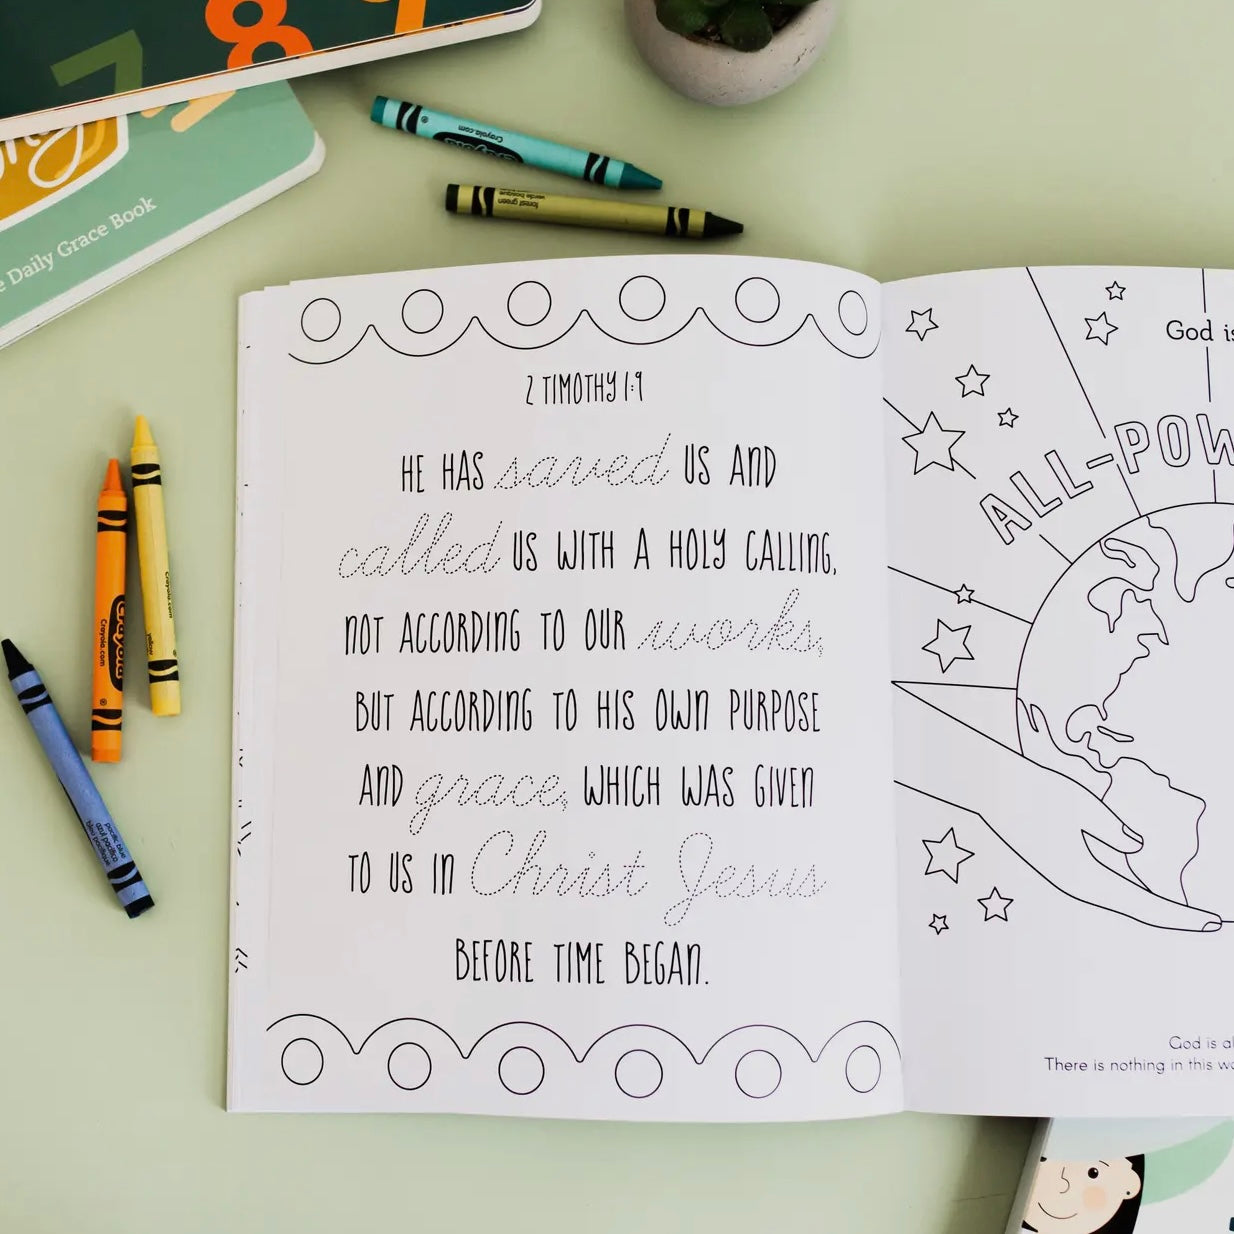 7 8 9
Daily Grace Book
Crayola.com
Crayola
forest green
verde bosque
2 TIMOTHY 1:9
HE HAS saved US AND
called US WITH A HOLY CALLING,
NOT ACCORDING TO OUR works,
BUT ACCORDING TO HIS OWN PURPOSE
AND grace, WHICH WAS GIVEN
TO US IN Christ Jesus
BEFORE TIME BEGAN.
God is
ALL-POW
God is al
There is nothing in this wo
Crayola
Crayola.com
Crayola.com
yellow
pacific blue
azul pacífico
bleu pacifique